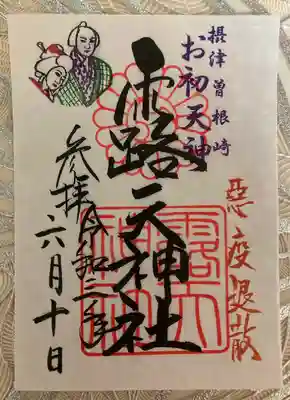 摂津曽根崎
お初天神
悪疫退散
露天神社
参拝令和三年
六月十日